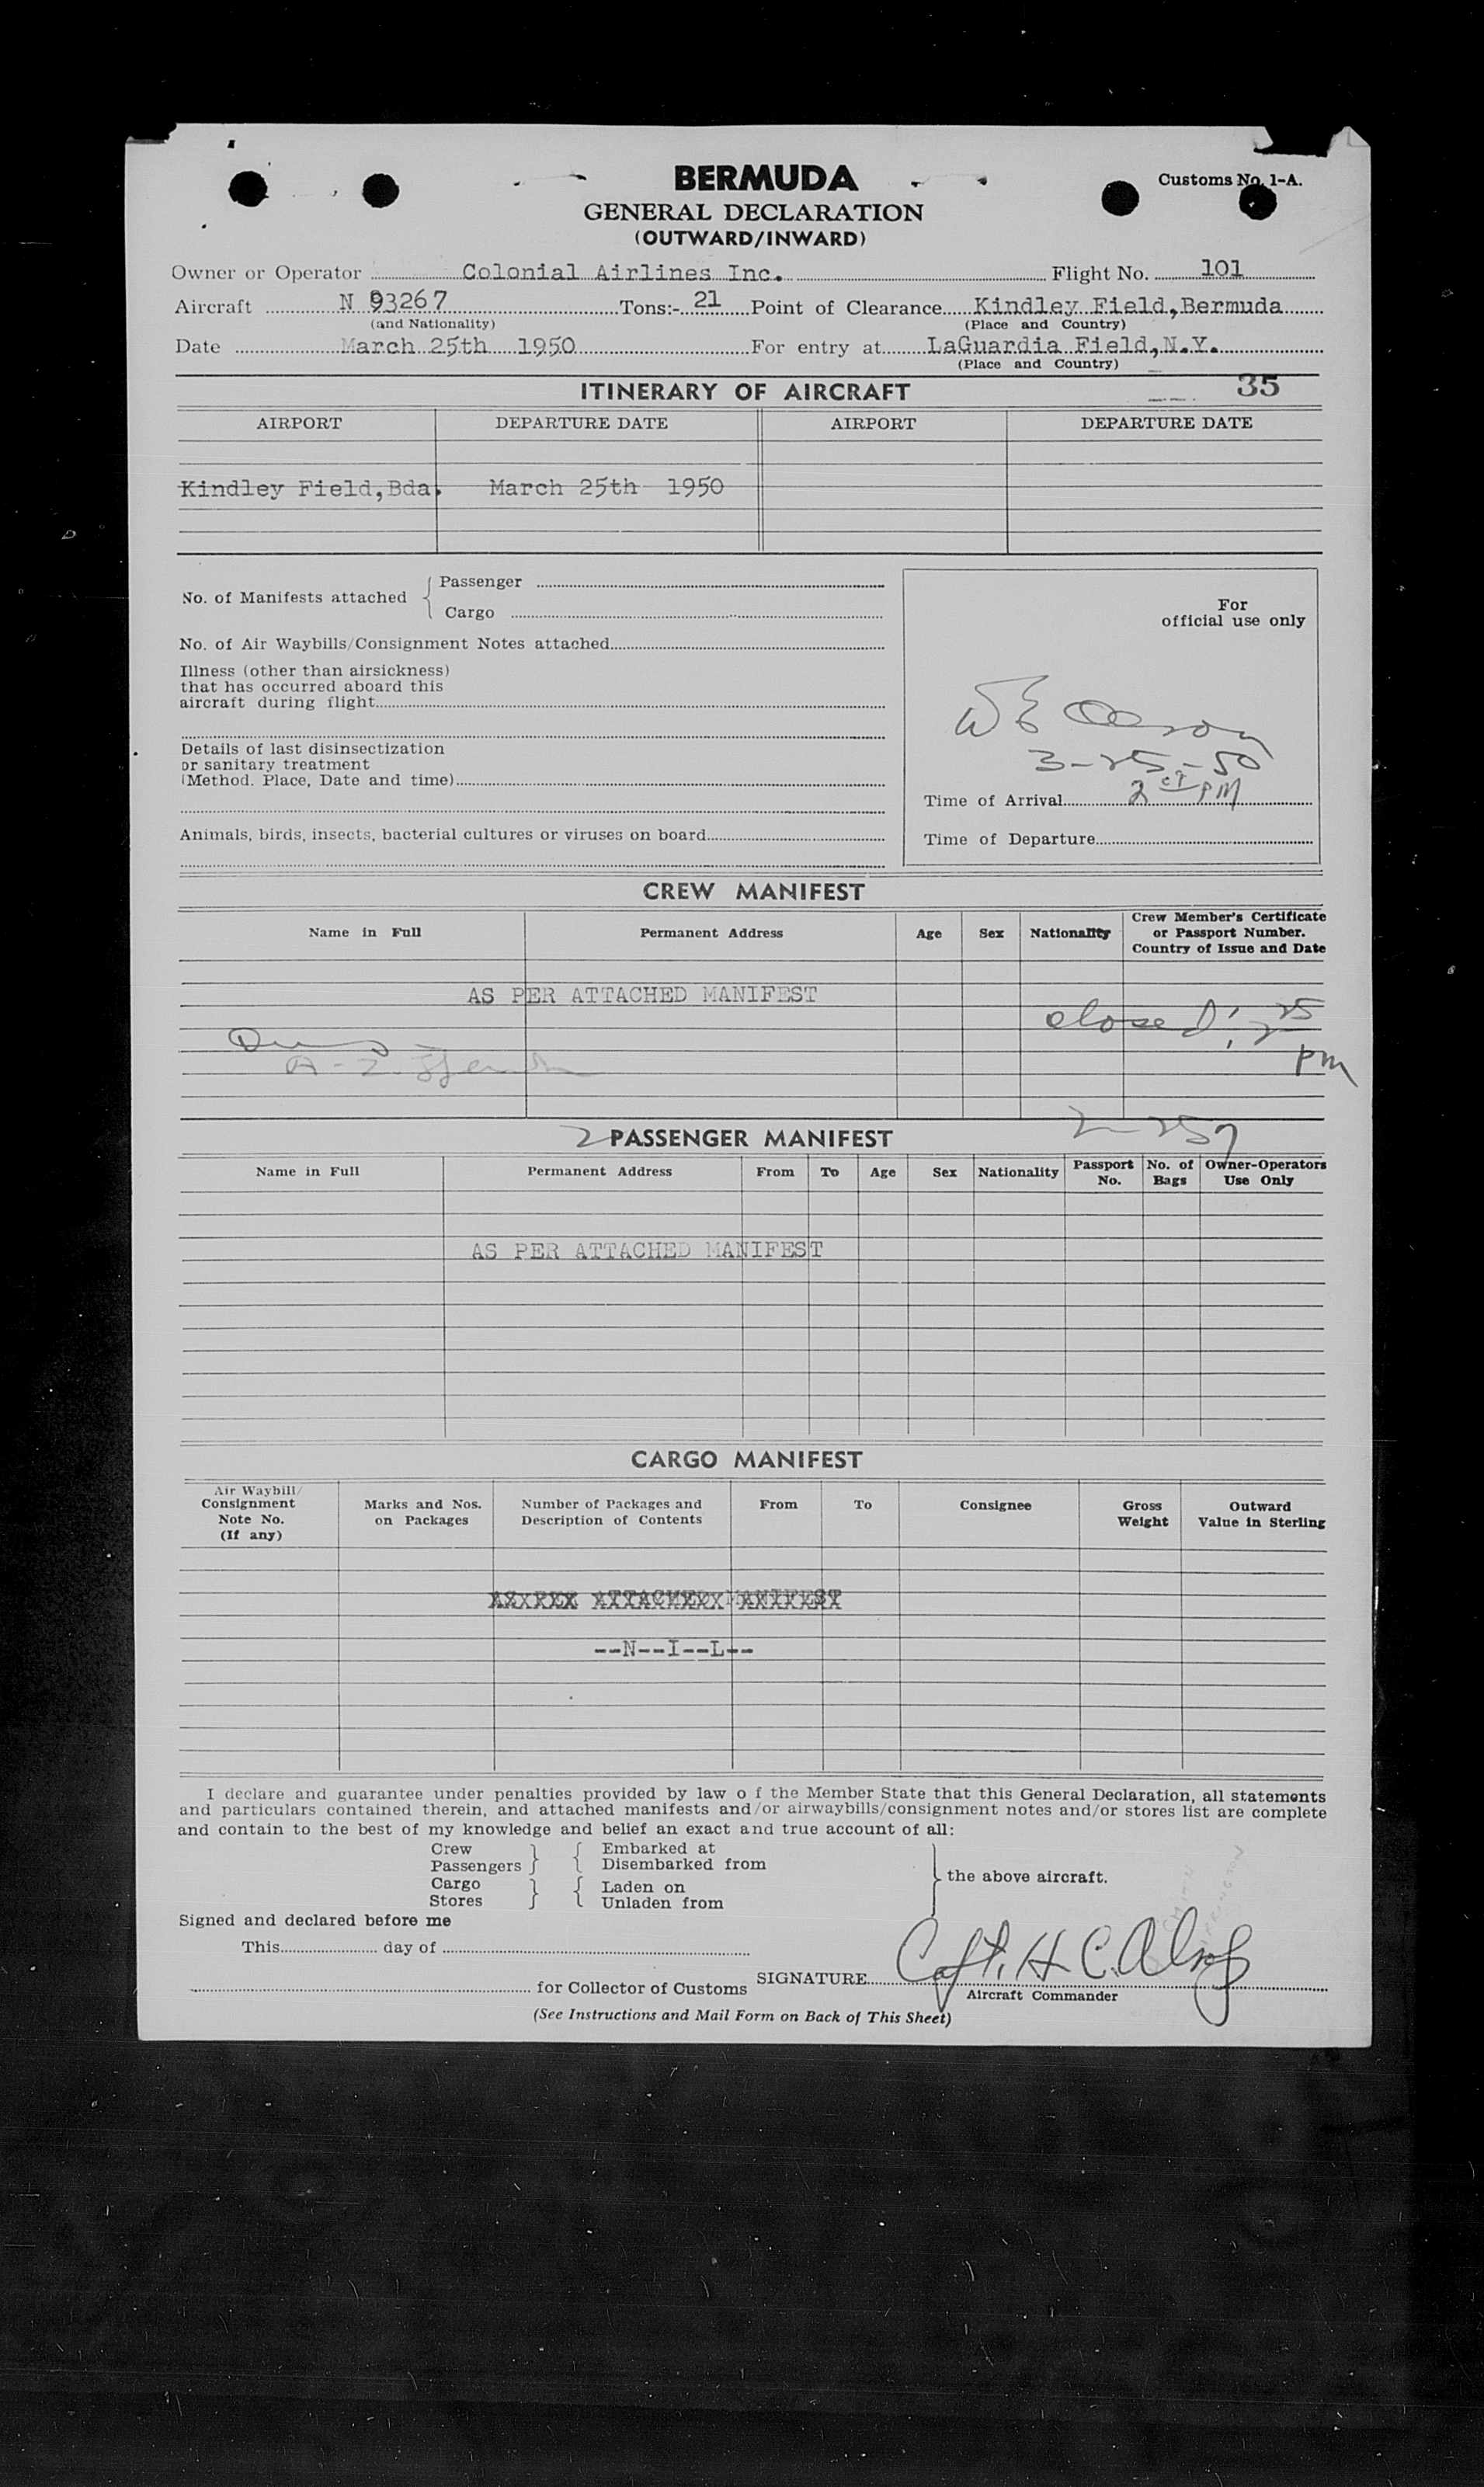 BERMUDA
Customs No. 1-A.
GENERAL DECLARATION
(OUTWARD/INWARD)
Owner or Operator Colonial Airlines Inc. Flight No. 101
Aircraft N 93267 Tons:- 21 Point of Clearance Kindley Field,Bermuda
(and Nationality) (Place and Country)
Date March 25th 1950 For entry at LaGuardia Field,N.Y.
(Place and Country)
ITINERARY OF AIRCRAFT 35
AIRPORT DEPARTURE DATE AIRPORT DEPARTURE DATE
Kindley Field,Bda. March 25th 1950
No. of Manifests attached
Passenger
Cargo
No. of Air Waybills/Consignment Notes attached
Illness (other than airsickness)
that has occurred aboard this
aircraft during flight
Details of last disinsectization
or sanitary treatment
(Method. Place, Date and time)
Animals, birds, insects, bacterial cultures or viruses on board
For
official use only
3-25-50
Time of Arrival 2 PM
Time of Departure
CREW MANIFEST
Name in Full Permanent Address Age Sex Nationality Crew Member's Certificate
or Passport Number.
Country of Issue and Date
AS PER ATTACHED MANIFEST
closed
PM
PASSENGER MANIFEST
Name in Full Permanent Address From To Age Sex Nationality Passport No. No. of Bags Owner-Operators Use Only
AS PER ATTACHED MANIFEST
CARGO MANIFEST
Air Waybill/
Consignment
Note No.
(If any)
Marks and Nos.
on Packages
Number of Packages and
Description of Contents
From To Consignee
Gross
Weight
Outward
Value in Sterling
--N--I--L--
I declare and guarantee under penalties provided by law o f the Member State that this General Declaration, all statements
and particulars contained therein, and attached manifests and/or airwaybills/consignment notes and/or stores list are complete
and contain to the best of my knowledge and belief an exact and true account of all:
Crew Embarked at
Passengers Disembarked from
Cargo Laden on
Stores Unladen from
the above aircraft.
Signed and declared before me
This day of
for Collector of Customs
SIGNATURE Capt. H. C.
Aircraft Commander
(See Instructions and Mail Form on Back of This Sheet)